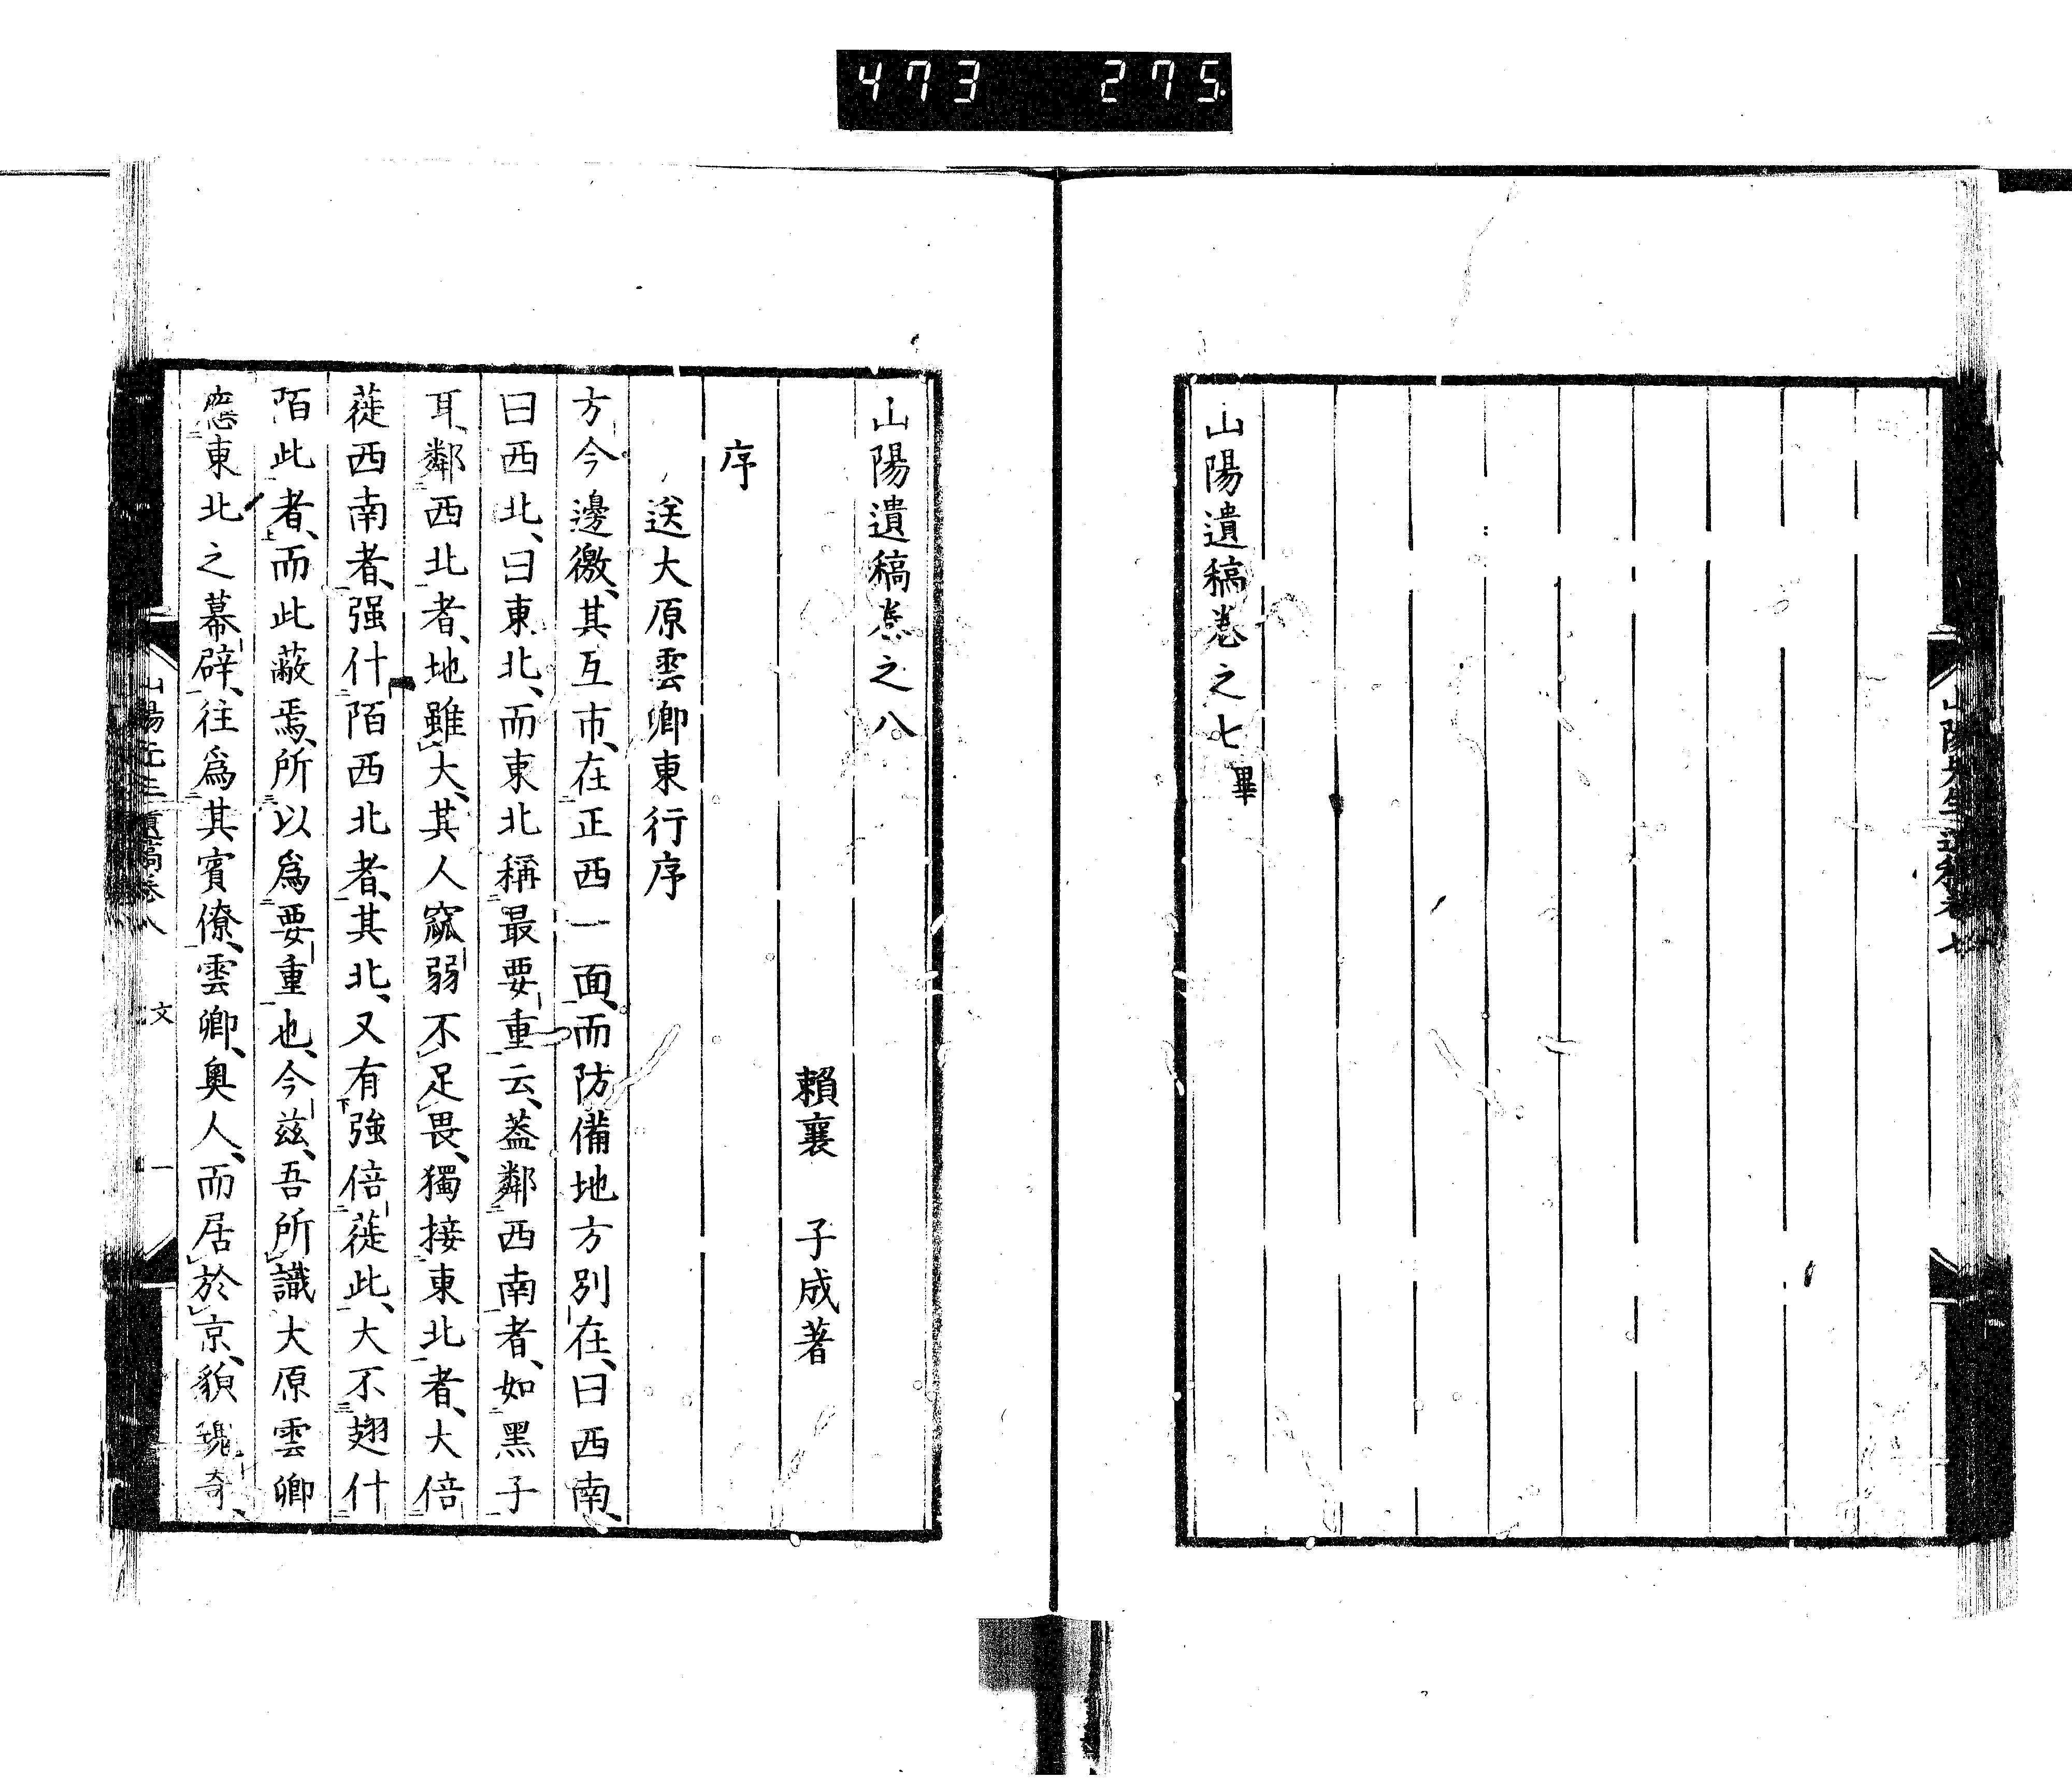 473 275
山陽遺稿卷之七畢
山陽遺稿卷之八
賴襄 子成著
序
送大原雲卿東行序
方今邊徼、其互市、在正西一面、而防備地方別在、曰西南、
曰西北、曰東北、而東北稱最要重云、蓋鄰西南者、如黑子
耳、鄰西北者、地雖大、其人窳弱不足畏、獨接東北者、大倍
蓰西南者、强什陌西北者、其北、又有強倍蓰此、大不翅什
陌此者、而此蔽焉、所以爲要重也、今茲、吾所識大原雲卿
應東北之幕辟、往爲其賓僚、雲卿、奧人、而居於京、貌瑰奇、
文 一